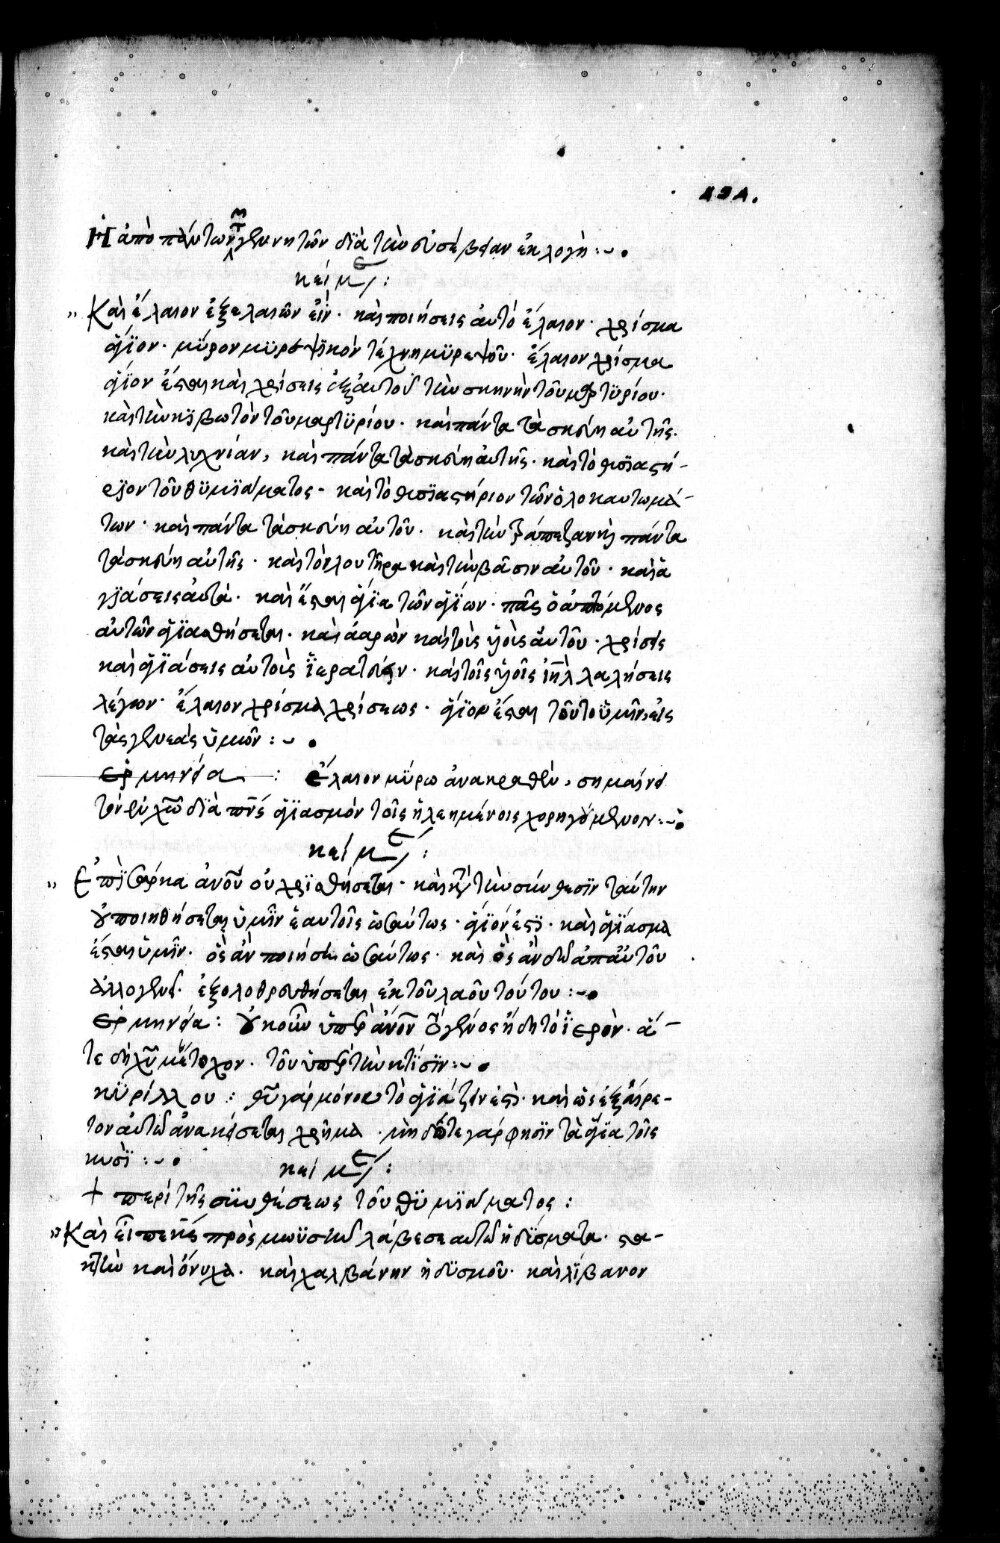 191.
Ἡ ἀπὸ πάντων τῶν γεννητῶν διὰ τὴν εὐσέβειαν ἐκλογή :~
κείμενον :
Καὶ ἔλαιον ἐξ ἐλαιῶν εἲν· καὶ ποιήσεις αὐτὸ ἔλαιον· χρίσμα
ἅγϊον· μύρον μϋρεψϊκὸν τέχνη μϋρεψοῦ· ἔλαιον χρίσμα
ἅγϊον ἔσται καὶ χρίσεις ἐξ αὐτοῦ τὴν σκηνὴν τοῦ μαρτϋρίου·
καὶ τὴν κϊβωτὸν τοῦ μαρτϋρίου· καὶ πάντα τὰ σκεύη αὐτῆς·
καὶ τὴν λυχνίαν, καὶ πάντα τὰ σκεύη αὐτῆς· καὶ τὸ θυσϊαστή-
ρϊον τοῦ θϋμϊάματος· καὶ τὸ θυσϊαστήριον τῶν ὁλοκαυτωμά-
των· καὶ πάντα τὰ σκεύη αὐτοῦ· καὶ τὴν τράπεζαν καὶ πάντα
τὰ σκεύη αὐτῆς· καὶ τὸν λουτῆρα καὶ τὴν βάσιν αὐτοῦ· καὶ ἁ
γϊάσεις αὐτά· καὶ ἔσται ἅγϊα τῶν ἁγίων· πᾶς ὁ ἁπτόμενος
αὐτῶν ἁγϊασθήσεται· καὶ ἀαρὼν καὶ τοὺς ὑϊοὺς αὐτοῦ· χρίσεις
καὶ ἁγϊάσεις αὐτοὺς ἱερατεύειν· καὶ τοῖς ὑϊοῖς ἰηλ λαλήσεις
λέγων· ἔλαιον χρίσμα χρίσεως· ἅγϊον ἔσται τοῦτο ὑμῖν εἰς
τὰς γενεὰς ὑμῶν :~
ἑρμηνεία : ἔλαιον μύρω ἀνακραθὲν, σημαίνει
τὸν ἐν χω διὰ πνς ἁγϊασμὸν τοῖς ἠλεημένοις χορηγούμενον :~
κείμενον :
Ἐπὶ σάρκα ἀνου οὐ χρϊσθήσεται· καὶ κατὰ τὴν σύνθεσϊν ταύτην
οὐ ποιηθήσεται ὑμῖν ἑαυτοῖς ὡσαύτως· ἅγϊον ἐστϊ· καὶ ἁγίασμα
ἔσται ὑμῖν· ὃς ἂν ποιήση ὡσαύτως· καὶ ὃς ἂν δῶ ἀπ' αὐτοῦ
ἀλλογενεῖ· ἐξολοθρευθήσεται ἐκ τοῦ λαοῦ τούτου :~
ἑρμηνεία : Οὐκοῦν ὑπὲρ ἄνον γένος ἤδη τὸ ἱερὸν· ἅ-
τε δὴ χυ μέτοχον· τοῦ ὑπὲρ τὴν κτίσϊν :~
κϋρίλλου : θυ γὰρ μόνου τὸ ἁγϊάζειν ἐστὶ· καὶ ὡς ἐξαίρε-
τον αὐτῶ ἀνακείσεται χρῆμα· μὴ δότε γὰρ φησϊν τὰ ἅγϊα τοῖς
κυσὶ :~
κείμενον :
+ περὶ τῆς συνθέσεως τοῦ θϋμϊάματος :
Καὶ εἶπε κς πρὸς μωϋσῆν λάβε σεαυτῶ ἡδύσματα· στα-
κτὴν καὶ ὄνυχα· καὶ χαλβάνην ἡδϋσμοῦ· καὶ λίβανον